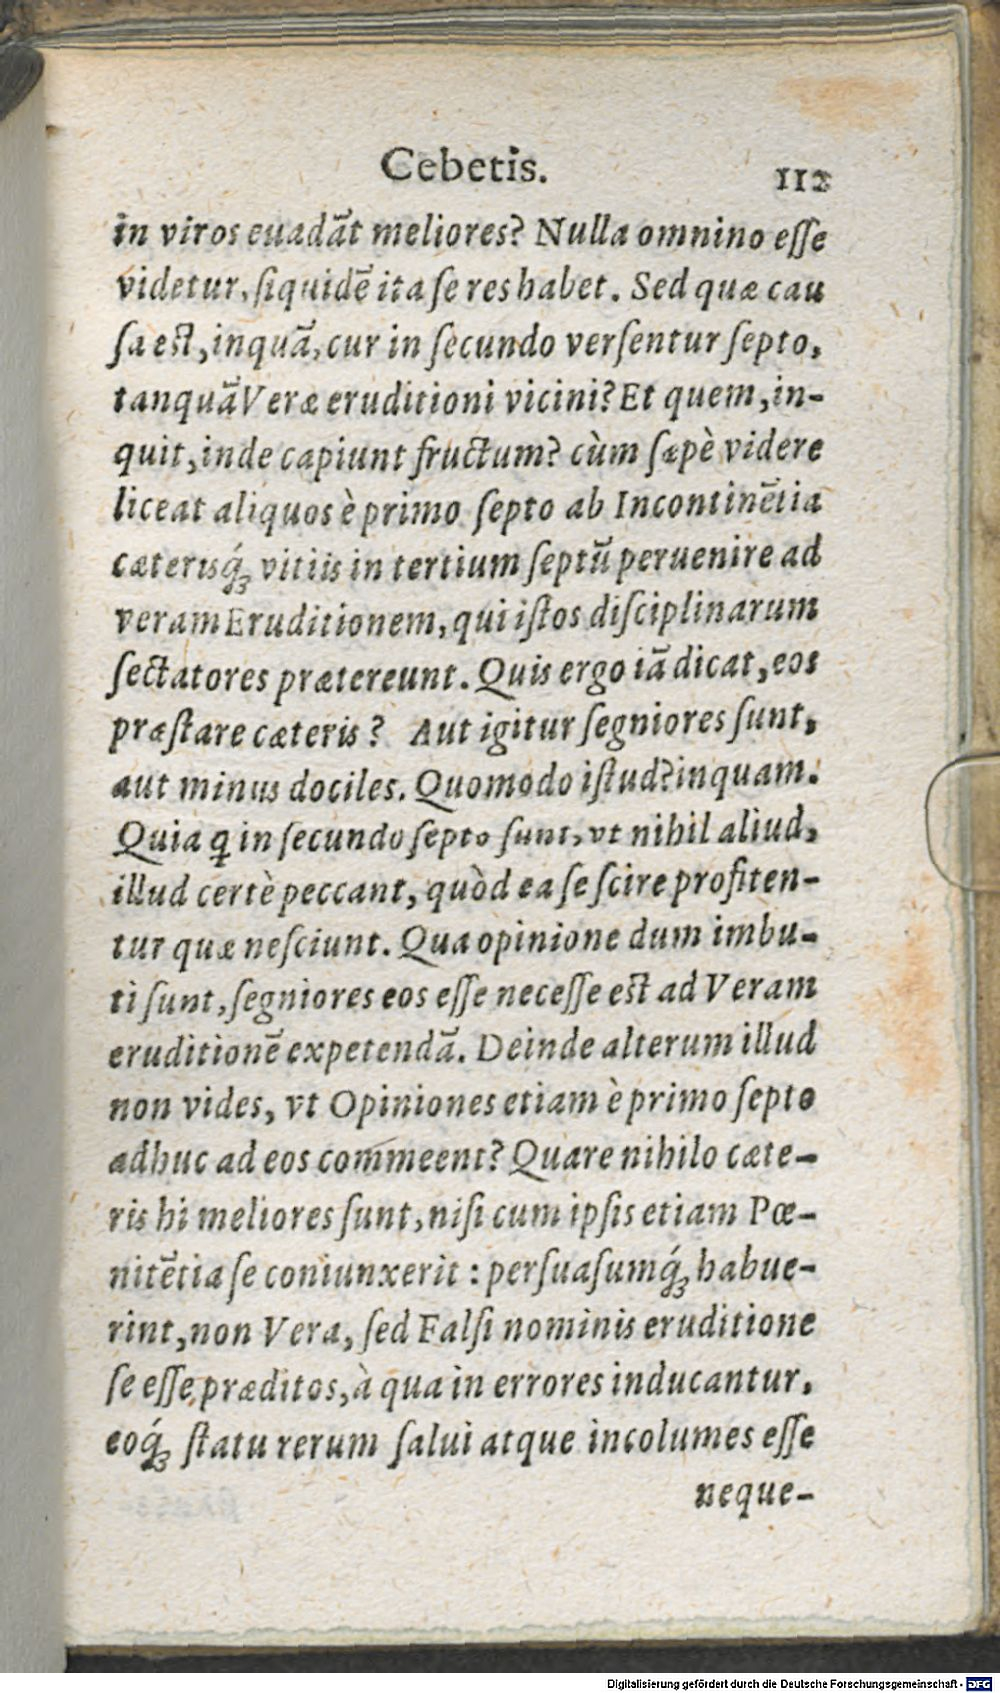 Cebetis. 112
in viros euadãt meliores? Nulla omnino eſſe
videtur, ſiquidẽ ita ſe res habet. Sed quæ cau
ſa est, inquã, cur in ſecundo verſentur ſepto,
tanquã Veræ eruditioni vicini? Et quem, in-
quit, inde capiunt fructum? cùm ſæpè videre
liceat aliquos è primo ſepto ab Incontinẽtia
cæterisq́ꝫ vitiis in tertium ſeptũ peruenire ad
veram Eruditionem, qui iſtos diſciplinarum
ſectatores prætereunt. Quis ergo iã dicat, eos
præſtare cæteris? Aut igitur ſegniores ſunt,
aut minus dociles. Quomodo iſtud? inquam.
Quia q̄ in ſecundo ſepto ſunt, vt nihil aliud,
illud certè peccant, quòd ea ſe ſcire profiten-
tur quæ neſciunt. Qua opinione dum imbu-
ti ſunt, ſegniores eos eſſe neceſſe est ad Veram
eruditionẽ expetendã. Deinde alterum illud
non vides, vt Opiniones etiam è primo ſepto
adhuc ad eos commeent? Quare nihilo cæte-
ris hi meliores ſunt, niſi cum ipſis etiam Pœ-
nitẽtia ſe coniunxerit: perſuaſumq́ꝫ habue-
rint, non Vera, ſed Falſi nominis eruditione
ſe eſſe præditos, à qua in errores inducantur,
eoq́ꝫ ſtatu rerum ſalui atque incolumes eſſe
neque-
Digitalisierung gefördert durch die Deutsche Forschungsgemeinschaft - DFG